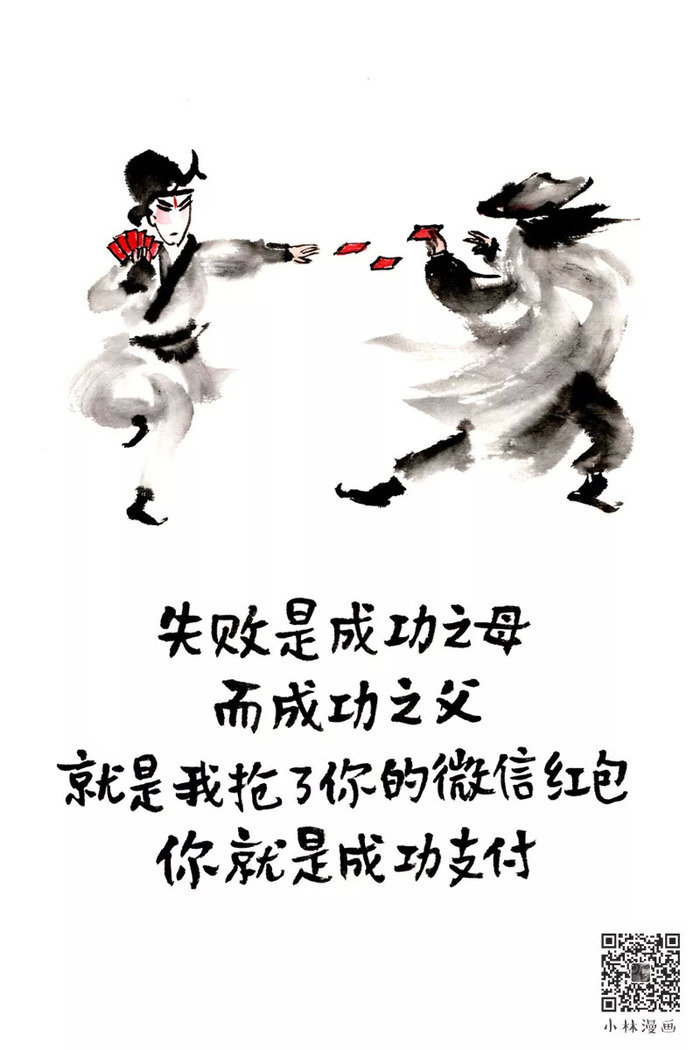 失败是成功之母
而成功之父
就是我抢了你的微信红包
你就是成功支付
小林漫画